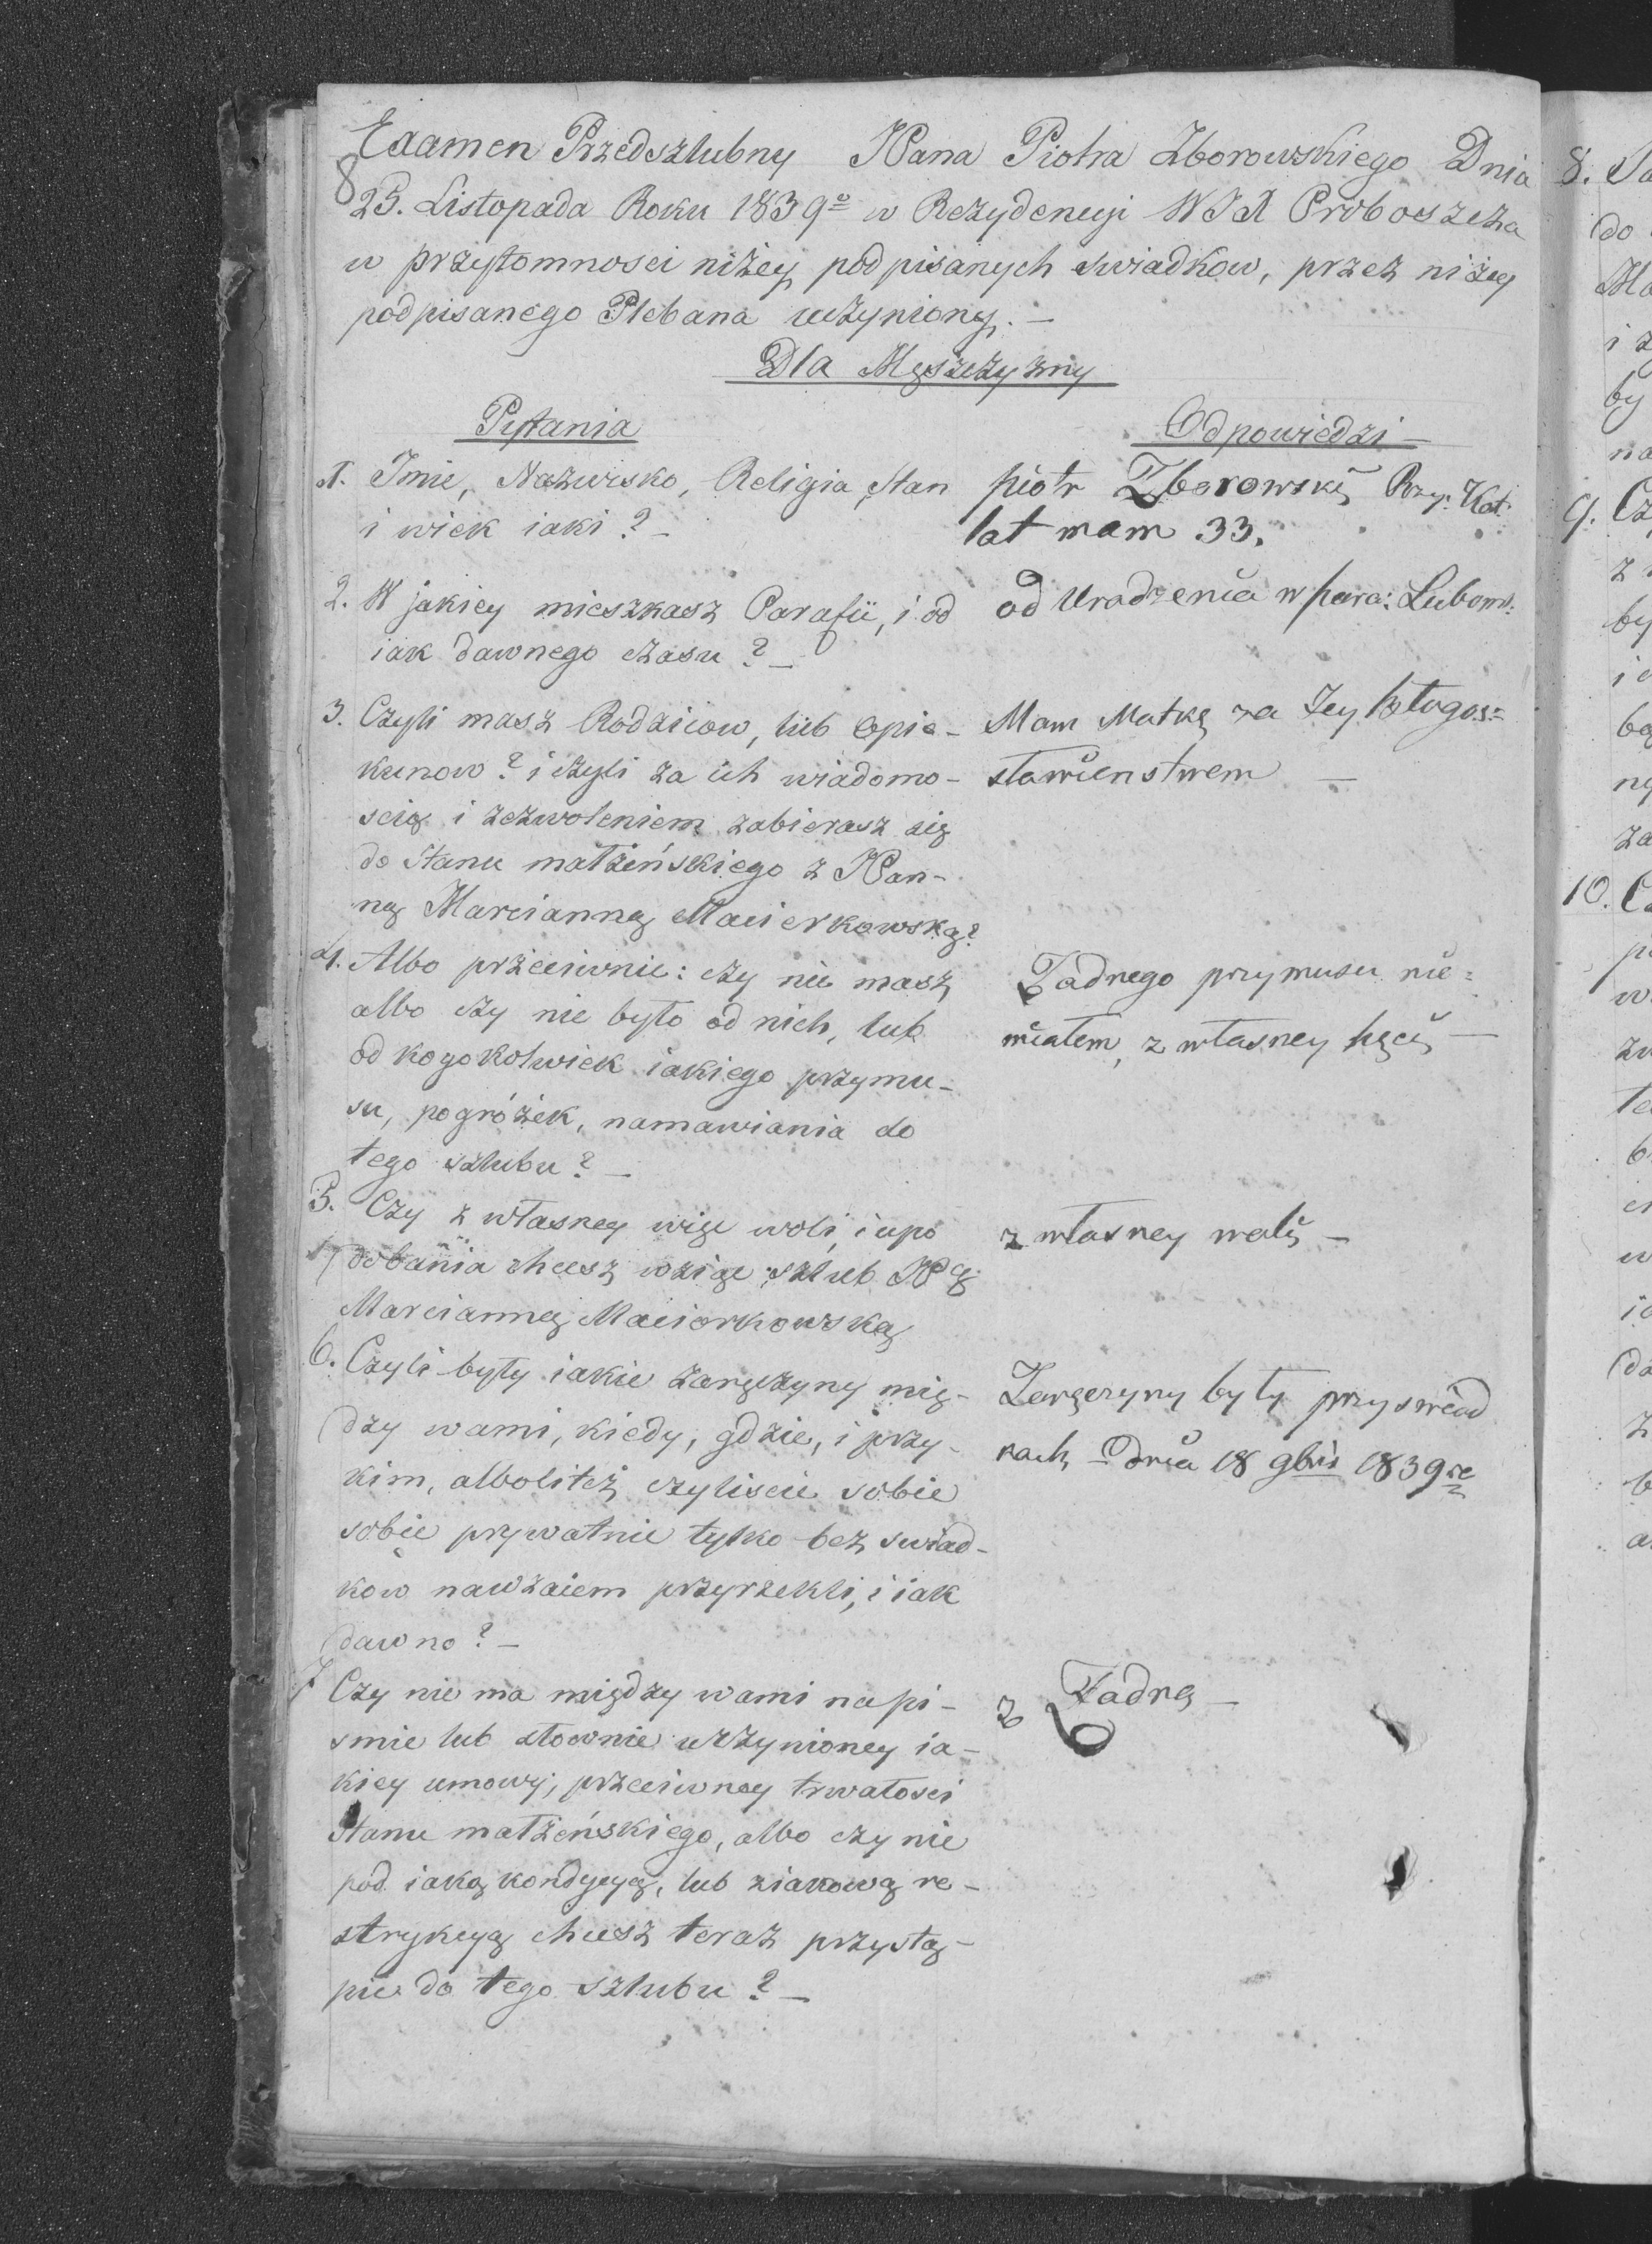 Examen Przedszlubny JPana Piotra Zborowskiego Dnia
8
25. Listopada Roku 1839º w Rezydencyi WJX Proboszcza
w przytomnosci niżey podpisanych swiadkow, przez niżey
podpisanego Plebana uczyniony. —
Dla Męszczyzny
Pytania
Odpowiedzi —
1. Imie, Nazwisko, Religia, Stan
i wiek iaki? —
piotr Zborowski Rzy: Kat:
lat mam 33.
2. W jakiey mieszkasz Parafii, i od
iak dawnego czasu? —
od Urodzenia w para: Lubom:
3. Czyli masz Rodzicow, lub Opie-
kunow? i czyli za ich wiadomo-
scią i zezwoleniem zabierasz się
do Stanu małżeńskiego z JPan-
ną Marcianną Macierkowską?
Mam Matkę za Jey Błogos=
ławienstwem —
4. Albo przeciwnie: czy nie masz,
albo czy nie było od nich, lub
od kogokolwiek iakiego przymu-
su, pogróżek, namawiania do
tego szlubu? —
Żadnego przymusu nie=
miałem, z własney hęci —
5. Czy z własney więc woli, i upo
dobania chcesz wziąc szlub JPą
Marcianną Maciorkowską
z własney woli —
6. Czyli były iakie zaręczyny mię-
dzy wami, kiedy, gdzie, i przy-
kim, albolitéż czyliscie sobie
sobie prywatnie tylko bez swiad-
ków nawzaiem przyrzekli, i iak
dawno? —
Zaręczyny były przy swiad
kach Dnia 18 9bris 1839 re
7 Czy nie ma między wami na pi-
smie lub słownie uczynioney ia-
kiey umowy, przeciwney trwałosci
Stanu małżeńskiego, albo czy nie
pod iaką kondycyą, lub ziakową re-
strykcyą chcesz teraz przystą-
pic do tego szlubu? —
z Żadną —